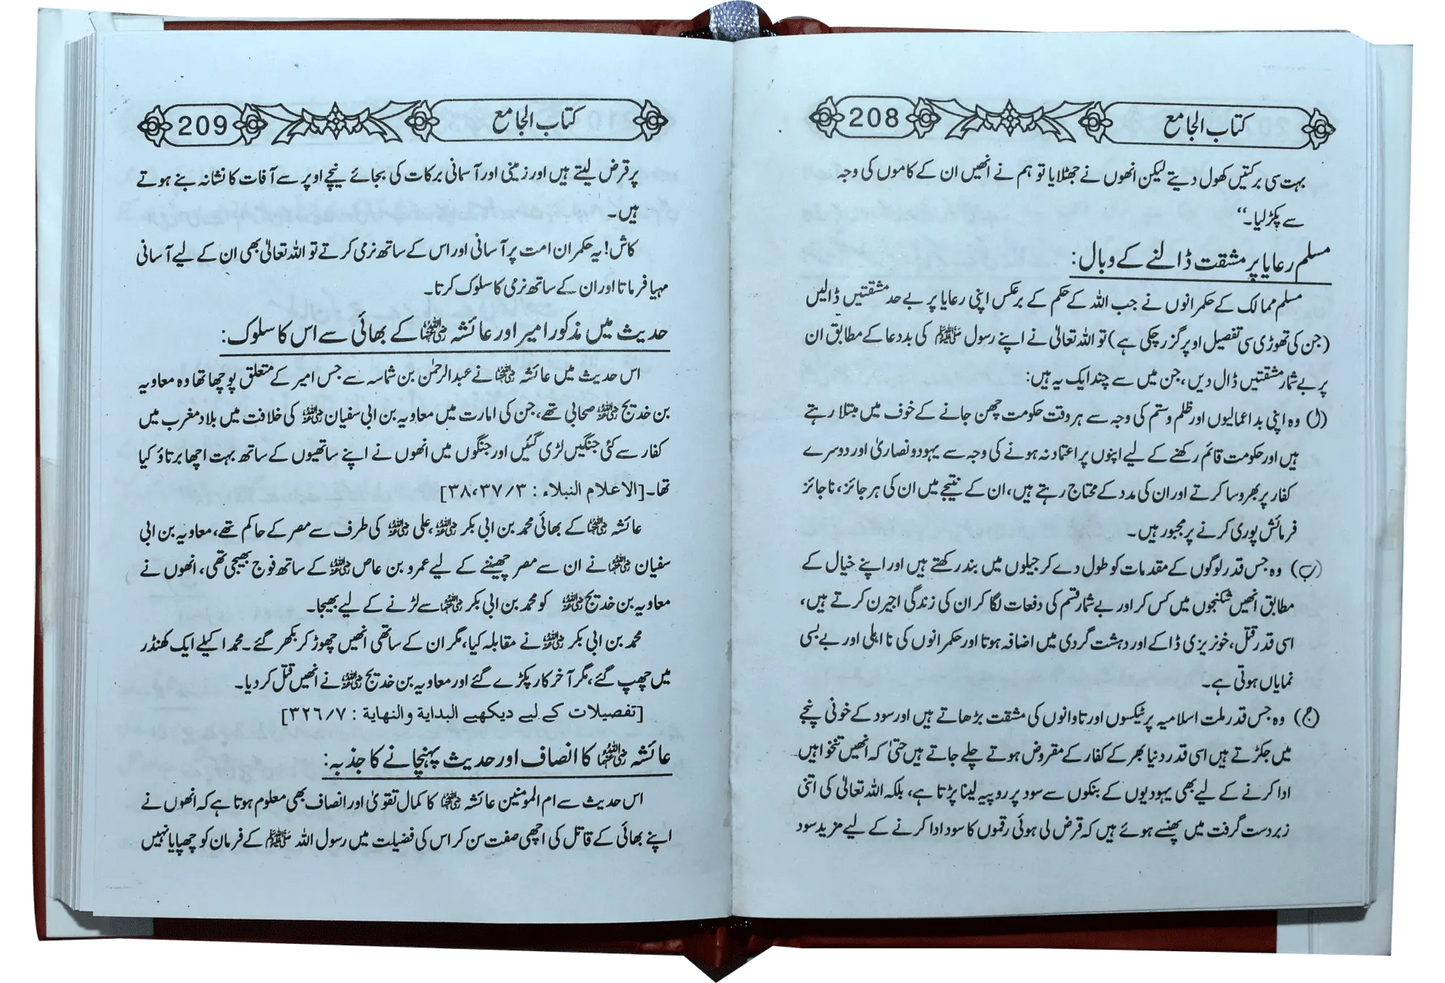 208
كتاب الجامع
بہت سی برکتیں کھول دیتے لیکن انھوں نے جھٹلایا تو ہم نے انھیں ان کے کاموں کی وجہ
سے پکڑ لیا۔“
مسلم رعایا پر مشقت ڈالنے کے وبال:
مسلم ممالک کے حکمرانوں نے جب اللہ کے حکم کے برعکس اپنی رعایا پر بے حد مشقتیں ڈالیں
(جن کی تھوڑی سی تفصیل اوپر گزر چکی ہے) تو اللہ تعالیٰ نے اپنے رسول ﷺ کی بددعا کے مطابق ان
پر بے شمار مشقتیں ڈال دیں، جن میں سے چند ایک یہ ہیں:
(ا) وہ اپنی بداعمالیوں اور ظلم و ستم کی وجہ سے ہر وقت حکومت چھن جانے کے خوف میں مبتلا رہتے
ہیں اور حکومت قائم رکھنے کے لیے اپنوں پر اعتماد نہ ہونے کی وجہ سے یہود و نصاریٰ اور دوسرے
کفار پر بھروسا کرتے اور ان کی مدد کے محتاج رہتے ہیں، ان کے نتیجے میں ان کی ہر جائز، ناجائز
فرمائش پوری کرنے پر مجبور ہیں۔
(ب) وہ جس قدر لوگوں کے مقدمات کو طول دے کر جیلوں میں بند رکھتے ہیں اور اپنے خیال کے
مطابق انھیں شکنجوں میں کس کر اور بے شمار قسم کی دفعات لگا کر ان کی زندگی اجیرن کرتے ہیں،
اسی قدر قتل، خونریزی ڈاکے اور دہشت گردی میں اضافہ ہوتا اور حکمرانوں کی نااہلی اور بے بسی
نمایاں ہوتی ہے۔
(ج) وہ جس قدر ملت اسلامیہ پر ٹیکسوں اور تاوانوں کی مشقت بڑھاتے ہیں اور سود کے خونی پنجے
میں جکڑتے ہیں اسی قدر دنیا بھر کے کفار کے مقروض ہوتے چلے جاتے ہیں حتیٰ کہ انھیں تنخواہیں
ادا کرنے کے لیے بھی یہودیوں کے بنکوں سے سود پر روپیہ لینا پڑتا ہے، بلکہ اللہ تعالیٰ کی اتنی
زبردست گرفت میں پھنسے ہوئے ہیں کہ قرض لی ہوئی رقموں کا سود ادا کرنے کے لیے مزید سود
209
كتاب الجامع
پر قرض لیتے ہیں اور زمینی اور آسمانی برکات کی بجائے نیچے اوپر سے آفات کا نشانہ بنے ہوتے
ہیں۔
کاش! یہ حکمران امت پر آسانی اور اس کے ساتھ نرمی کرتے تو اللہ تعالیٰ بھی ان کے لیے آسانی
مہیا فرماتا اور ان کے ساتھ نرمی کا سلوک کرتا۔
حدیث میں مذکور امیر اور عائشہ رضی اللہ عنہا کے بھائی سے اس کا سلوک:
اس حدیث میں عائشہ رضی اللہ عنہا نے عبدالرحمٰن بن شماسہ سے جس امیر کے متعلق پوچھا تھا وہ معاویہ
بن خدیج رضی اللہ عنہ صحابی تھے، جن کی امارت میں معاویہ بن ابی سفیان رضی اللہ عنہ کی خلافت میں بلاد مغرب میں
کفار سے کئی جنگیں لڑی گئیں اور جنگوں میں انھوں نے اپنے ساتھیوں کے ساتھ بہت اچھا برتاؤ کیا
تھا۔ [الاعلام النبلاء : ۳/۳۷،۳۸]
عائشہ رضی اللہ عنہا کے بھائی محمد بن ابی بکر رضی اللہ عنہ، علی رضی اللہ عنہ کی طرف سے مصر کے حاکم تھے، معاویہ بن ابی
سفیان رضی اللہ عنہ نے ان سے مصر چھیننے کے لیے عمرو بن عاص رضی اللہ عنہ کے ساتھ فوج بھیجی تھی، انھوں نے
معاویہ بن خدیج رضی اللہ عنہ کو محمد بن ابی بکر رضی اللہ عنہ سے لڑنے کے لیے بھیجا۔
محمد بن ابی بکر رضی اللہ عنہ نے مقابلہ کیا، مگر ان کے ساتھی انھیں چھوڑ کر بکھر گئے۔ محمد اکیلے ایک کھنڈر
میں چھپ گئے، مگر آخر کار پکڑے گئے اور معاویہ بن خدیج رضی اللہ عنہ نے انھیں قتل کر دیا۔
[تفصیلات کے لیے دیکھیے البداية والنهاية : ۷/۳۲۶]
عائشہ رضی اللہ عنہا کا انصاف اور حدیث پہنچانے کا جذبہ:
اس حدیث سے ام المومنین عائشہ رضی اللہ عنہا کا کمال تقویٰ اور انصاف بھی معلوم ہوتا ہے کہ انھوں نے
اپنے بھائی کے قاتل کی اچھی صفت سن کر اس کی فضیلت میں رسول اللہ ﷺ کے فرمان کو چھپایا نہیں